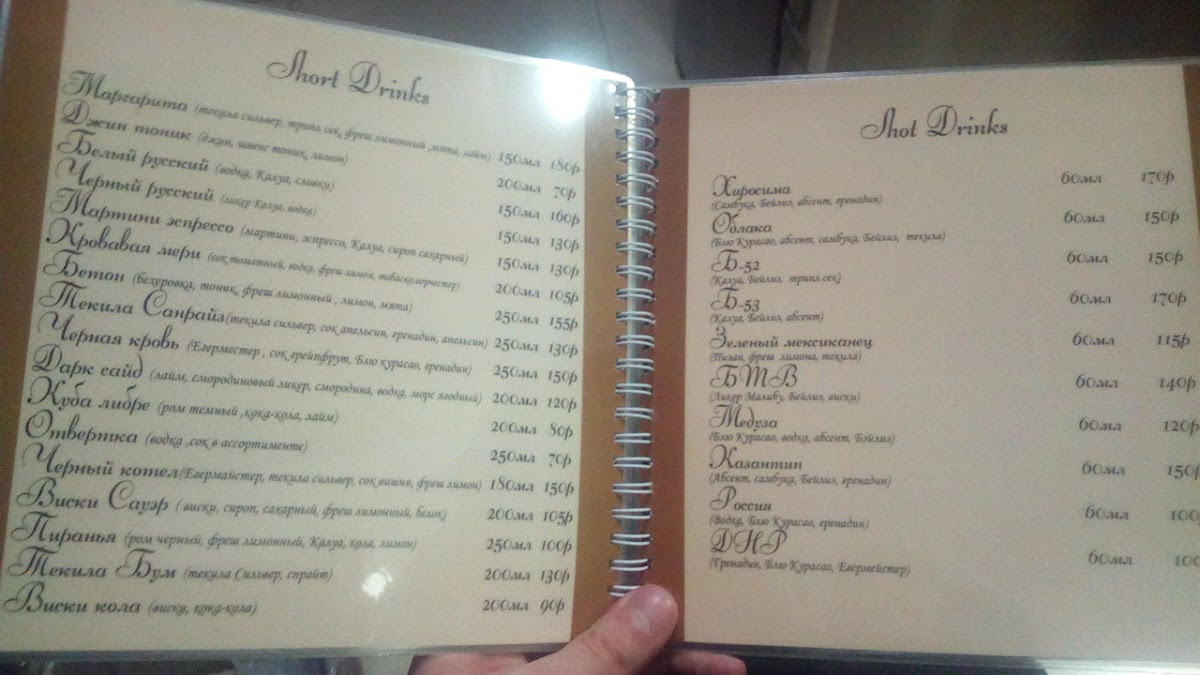 Short Drinks
Маргарита (текила сильвер, трипл сек, фреш лимонный ,мята, лайм) 150мл 180р
Джин тоник (джин, швепс тоник, лимон) 200мл 70р
Белый русский (водка, Калуа, сливки) 150мл 160р
Черный русский (ликер Калуа, водка) 150мл 130р
Мартини эспрессо (мартини, эспрессо, Калуа, сироп сахарный) 150мл 130р
Кровавая мери (сок томатный, водка, фреш лимон, табаско,ворчестер) 200мл 105р
Бетон (бехеровка, тоник, фреш лимонный , лимон, мята) 250мл 155р
Текила Санрайз(текила сильвер, сок апельсин, гренадин, апельсин) 250мл 130р
Черная кровь (Егерместер , сок грейпфрут, Блю курасао, гренадин) 250мл 150р
Дарк сайд (лайм, смородиновый ликер, смородина, водка, морс ягодный) 200мл 120р
Куба либре (ром темный ,кока-кола, лайм) 200мл 80р
Отвертка (водка ,сок в ассортименте) 250мл 70р
Черный котел(Егермайстер, текила сильвер, сок вишня, фреш лимон) 180мл 150р
Виски Сауэр ( виски, сироп, сахарный, фреш лимонный, белок) 200мл 105р
Пиранья (ром черный, фреш лимонный, Калуа, кола, лимон) 250мл 100р
Текила Бум (текила Сильвер, спрайт) 200мл 130р
Виски кола (виски, кока-кола) 200мл 90р
Shot Drinks
Хиросима 60мл 170р
(Самбука, Бейлиз, абсент, гренадин)
Облака 60мл 150р
(Блю Курасао, абсент, самбука, Бейлиз, текила)
Б-52 60мл 150р
(Калуа, Бейлиз, трипл сек)
Б-53 60мл 170р
(Калуа, Бейлиз, абсент)
Зеленый мексиканец 60мл 115р
(Пизан, фреш лимона, текила)
БТВ 60мл 140р
(Ликер Малибу, Бейлиз, виски)
Медуза 60мл 120р
(Блю Курасао, водка, абсент, Бэйлиз)
Казантип 60мл 150р
(Абсент, самбука, Бейлиз, гренадин)
Россия 60мл 100
(Водка, Блю Курасао, гренадин)
ДНР 60мл 100
(Гренадин, Блю Курасао, Егермейстер)